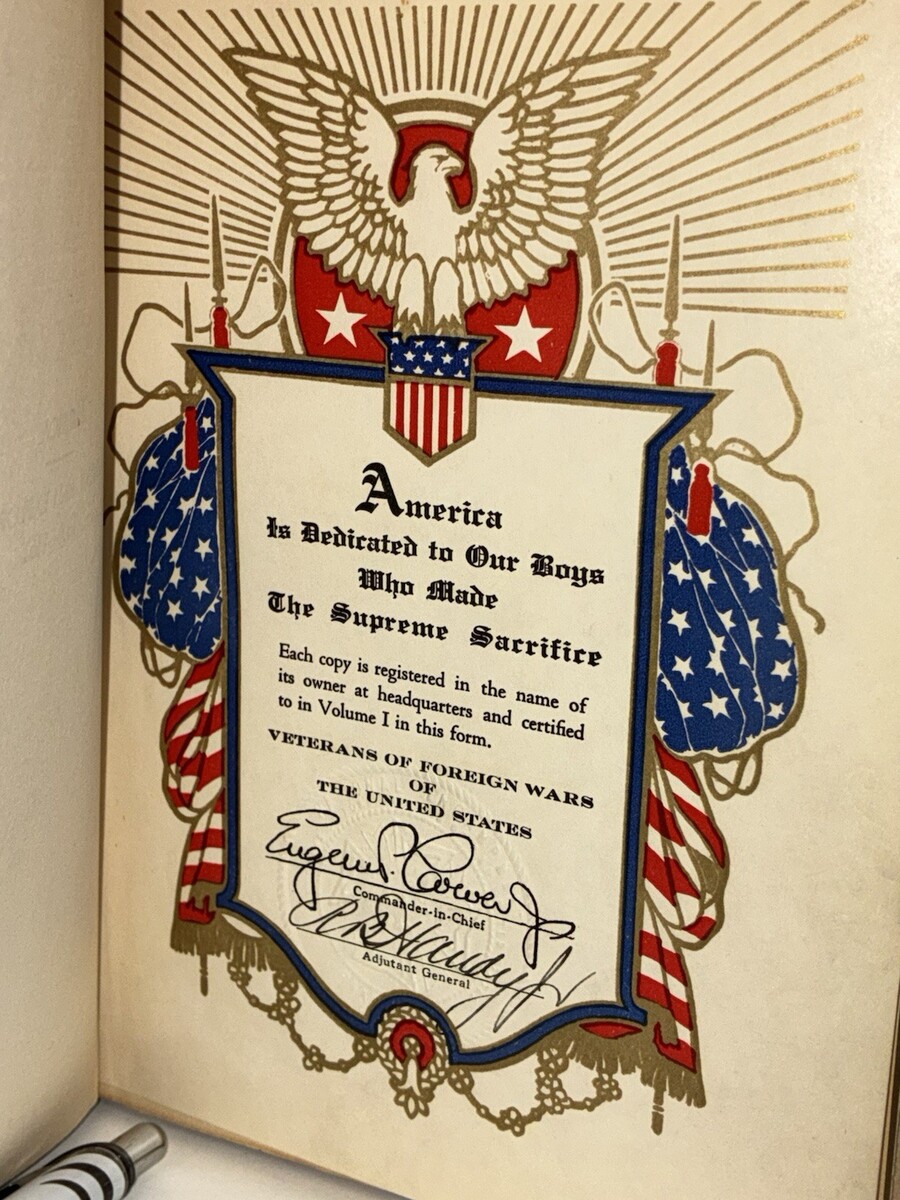 America
Is Dedicated to Our Boys
Who Made
The Supreme Sacrifice
Each copy is registered in the name of
its owner at headquarters and certified
to in Volume I in this form.
VETERANS OF FOREIGN WARS
OF
THE UNITED STATES
Eugene P. Carver Jr
Commander-in-Chief
R B Handy Jr
Adjutant General